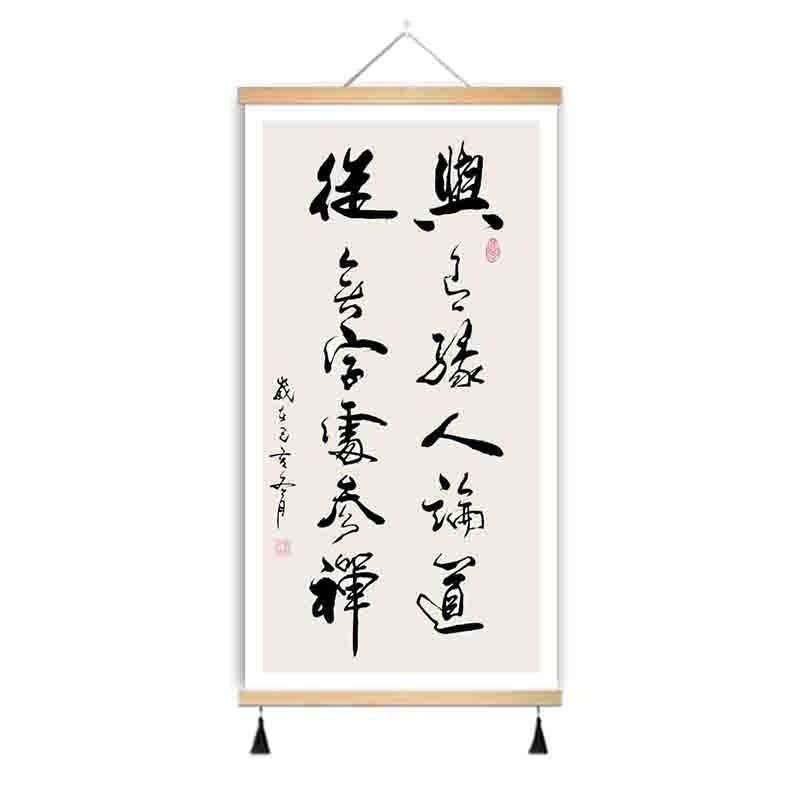 與有緣人論道
從無字處參禪
歲在己亥冬月